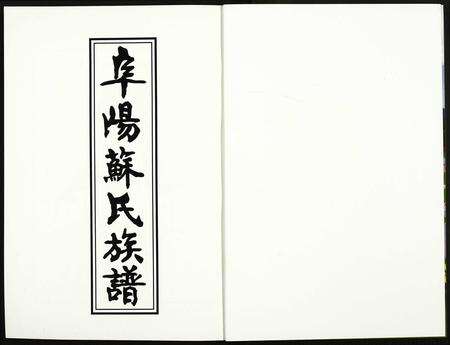 阜陽蘇氏族譜